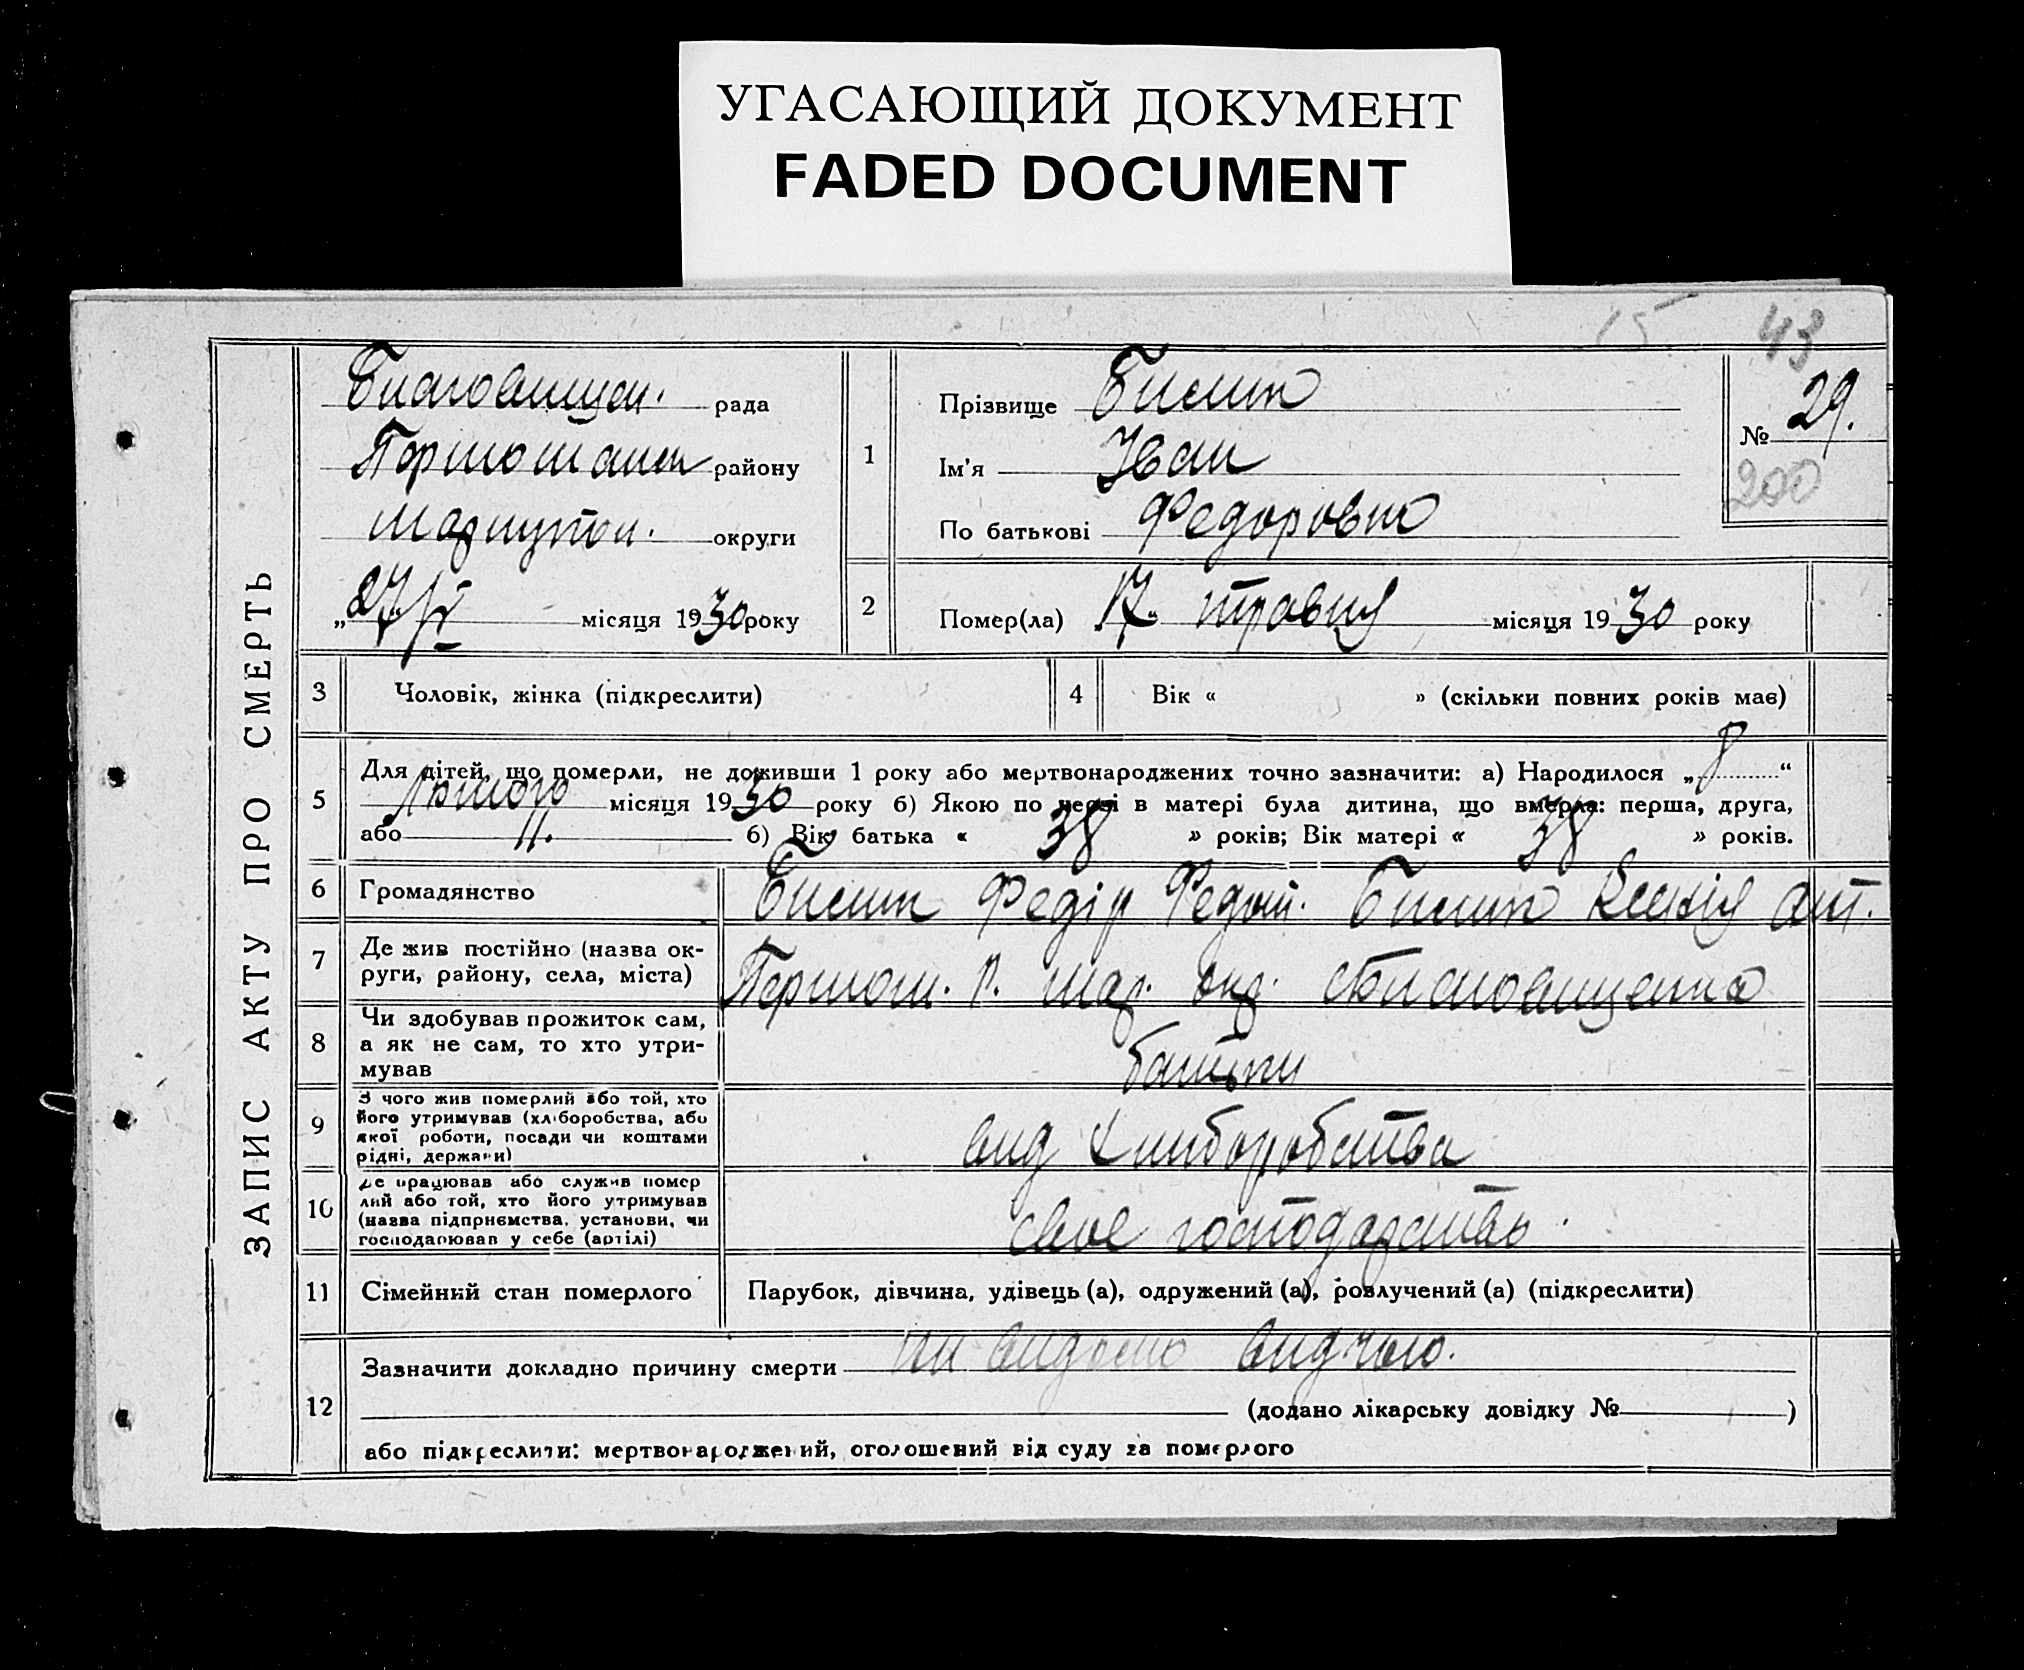 УГАСАЮЩИЙ ДОКУМЕНТ
FADED DOCUMENT
15 43
ЗАПИС АКТУ ПРО СМЕРТЬ
рада
району
округи
„27/V місяця 1930 року
1
Прізвище
Ім'я Іван
По батькові Федорович
№ 29.
200
2
Помер(ла) 17. травня місяця 1930 року
3 Чоловік, жінка (підкреслити)
4 Вік « » (скільки повних років має)
5 Для дітей, що померли, не доживши 1 року або мертвонароджених точно зазначити: а) Народилося „8“
Лютого місяця 1930 року б) Якою по черзі в матері була дитина, що вмерла: перша, друга,
або 11. б) Вік батька « 38 » років; Вік матері « 38 » років.
6 Громадянство Федір Ксенія
7 Де жив постійно (назва ок-
руги, району, села, міста)
8 Чи здобував прожиток сам,
а як не сам, то хто утри-
мував батьки
9 З чого жив померлий або той, хто
його утримував (хліборобства, або
якої роботи, посади чи коштами
рідні, держави) вид хлиборобства
10 Де працював або служив помер
лий або той, хто його утримував
(назва підприємства, установи, чи
господарював у себе (артілі) свое господарство.
11 Сімейний стан померлого Парубок, дівчина, удівець (а), одружений (а), розлучений (а) (підкреслити)
12
Зазначити докладно причину смерти ни видомо видчого.
(додано лікарську довідку № )
або підкреслити: мертвонароджений, оголошений від суду за померлого